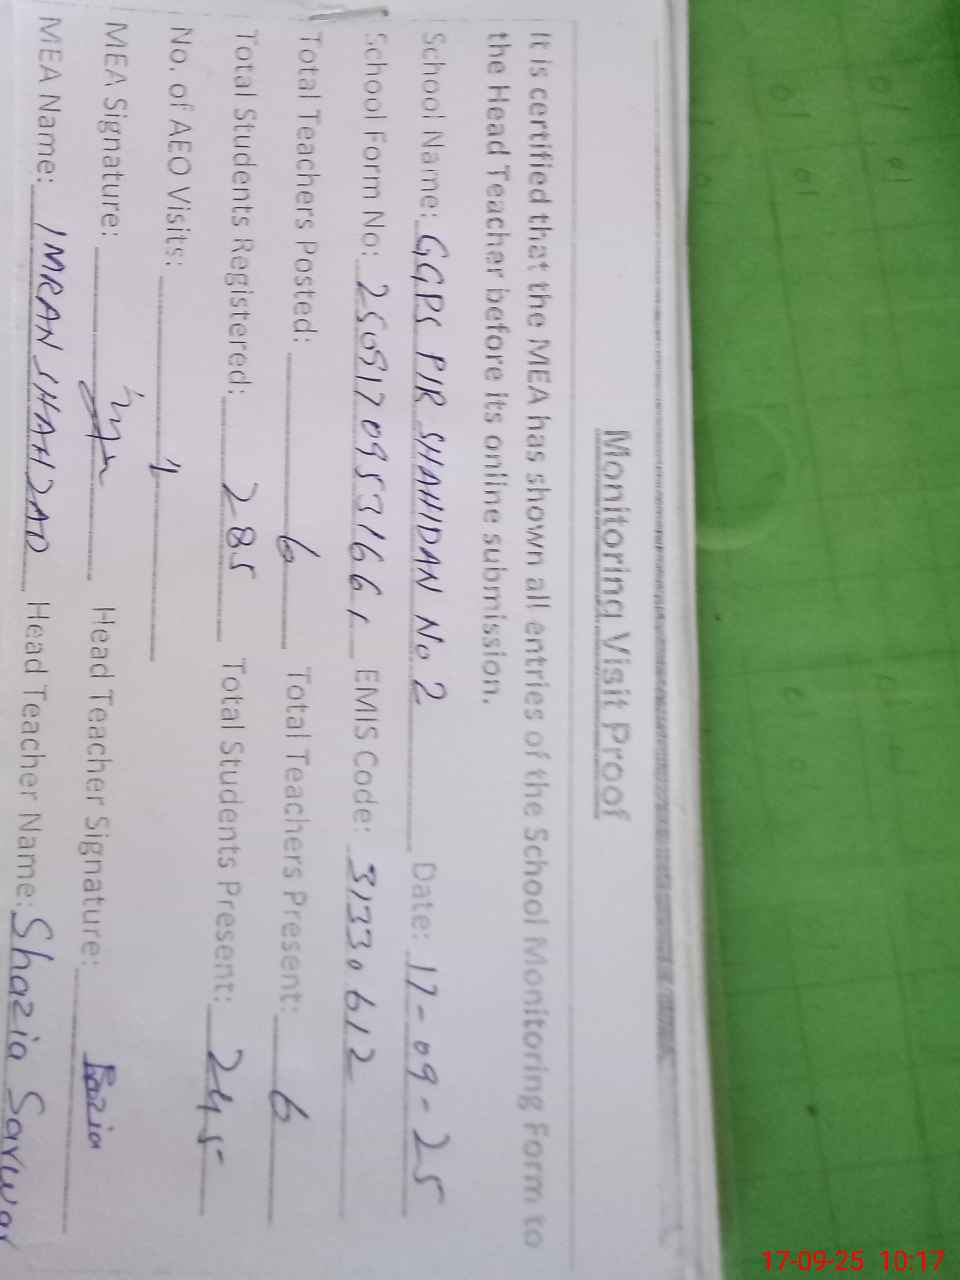 Monitoring Visit Proof
It is certified that the MEA has shown all entries of the School Monitoring Form to
the Head Teacher before its online submission.
School Name: GGPS PIR SHAHIDAN No 2 Date: 17-09-25
School Form No: 25091709531661 EMIS Code: 31330612
Total Teachers Posted: 6 Total Teachers Present: 6
Total Students Registered: 285 Total Students Present: 245
No. of AEO Visits: 1
MEA Signature: Head Teacher Signature:
MEA Name: IMRAN SHAHZAD Head Teacher Name: Shazia Sarwar
17-09-25 10:17